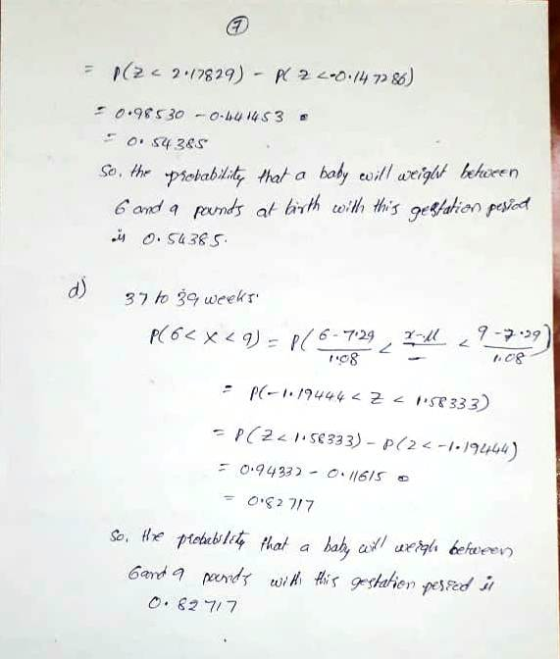 7
= P(Z < 2.17829) - P( Z < -0.147286)
= 0.98530 - 0.441453
= 0.54385
So, the probability that a baby will weight between
6 and 9 pounds at birth with this gestation period
is 0.54385.
d) 37 to 39 weeks.
P(6 < X < 9) = P( 6 - 7.29 / 1.08 < x-μ / < 9 - 7.29 / 1.08 )
= P(-1.19444 < Z < 1.58333)
= P(Z < 1.58333) - P(Z < -1.19444)
= 0.94332 - 0.11615
= 0.82717
So, the probability that a baby will weigh between
6 and 9 pounds with this gestation period is
0.82717